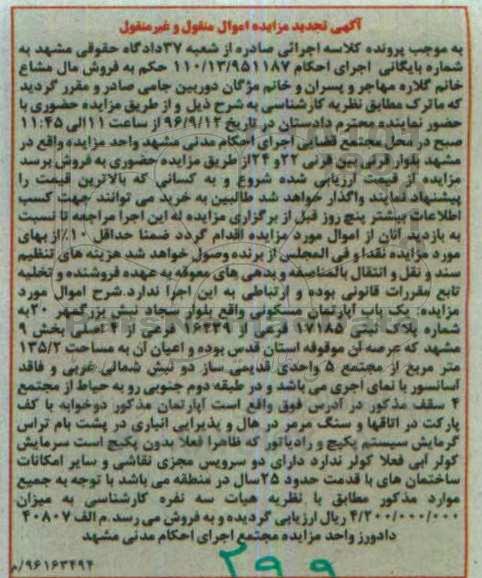 آگهی تجدید مزایده اموال منقول و غیرمنقول
به موجب پرونده کلاسه اجرائی صادره از شعبه ۳۷دادگاه حقوقی مشهد به
شماره بایگانی اجرای احکام ۱۱۰/۱۳/۹۵۱۱۸۷ حکم به فروش مال مشاع
خانم گلاره مهاجر و پسران و خانم مژگان دوربین جامی صادر و مقرر گردید
که ماترک مطابق نظریه کارشناسی به شرح ذیل و از طریق مزایده حضوری با
حضور نماینده محترم دادستان در تاریخ ۹۶/۹/۱۲ از ساعت ۱۱الی ۱۱:۴۵
صبح در محل مجتمع قضایی اجرای احکام مدنی مشهد واحد مزایده واقع در
مشهد بلوار قرنی بین قرنی ۲۲و ۲۴از طریق مزایده حضوری به فروش برسد
مزایده از قیمت ارزیابی شده شروع و به کسانی که بالاترین قیمت را
پیشنهاد نمایند واگذار خواهد شد طالبین به خرید می توانند جهت کسب
اطلاعات بیشتر پنج روز قبل از برگزاری مزایده له این اجرا مراجعه تا نسبت
به بازدید آنان از اموال مورد مزایده اقدام گردد ضمنا حداقل ۱۰٪از بهای
مورد مزایده نقدا و فی المجلس از برنده وصول خواهد شد هزینه های تنظیم
سند و نقل و انتقال بالمناصفه و بدهی های معوقه به عهده فروشنده و تخلیه
تابع مقررات قانونی بوده و ارتباطی به این اجرا ندارد.شرح اموال مورد
مزایده: یک باب آپارتمان مسکونی واقع بلوار سجاد نبش بزرگمهر ۲۰به
شماره پلاک ثبتی ۱۷۱۸۵ فرعی از ۱۶۴۳۹ فرعی از ۱ اصلی بخش ۹
مشهد که عرصه آن موقوفه استان قدس بوده و اعیان آن به مساحت ۱۳۵/۲
متر مربع از مجتمع ۵ واحدی قدیمی ساز دو نبش شمالی غربی و فاقد
آسانسور با نمای آجری می باشد و در طبقه دوم جنوبی رو به حیاط از مجتمع
۴ سقف مذکور در آدرس فوق واقع است آپارتمان مذکور دوخوابه با کف
پارکت در اتاقها و سنگ مرمر در هال و پذیرایی انباری در پشت بام تراس
گرمایش سیستم پکیج و رادیاتور که ظاهرا فعلا بدون پکیج است سرمایش
کولر آبی فعلا کولر ندارد دارای دو سرویس مجزی نقاشی و سایر امکانات
ساختمان های با قدمت حدود ۲۵سال در منطقه می باشد با توجه به جمیع
موارد مذکور مطابق با نظریه هیات سه نفره کارشناسی به میزان
۴/۲۰۰/۰۰۰/۰۰۰ ریال ارزیابی گردیده و به فروش می رسد.م الف ۴۰۸۰۷
دادورز واحد مزایده مجتمع اجرای احکام مدنی مشهد
۹۶۱۶۳۴۹۴/م
۲۹۹